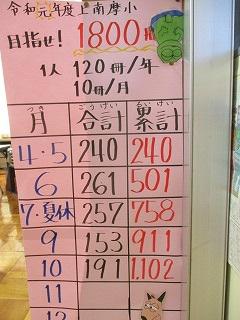 令和元年度上南摩小
目指せ! 1800冊
1人 120冊/年
10冊/月
月 合計 累計
4・5 240 240
6 261 501
7・夏休 257 758
9 153 911
10 191 1,102
11
12